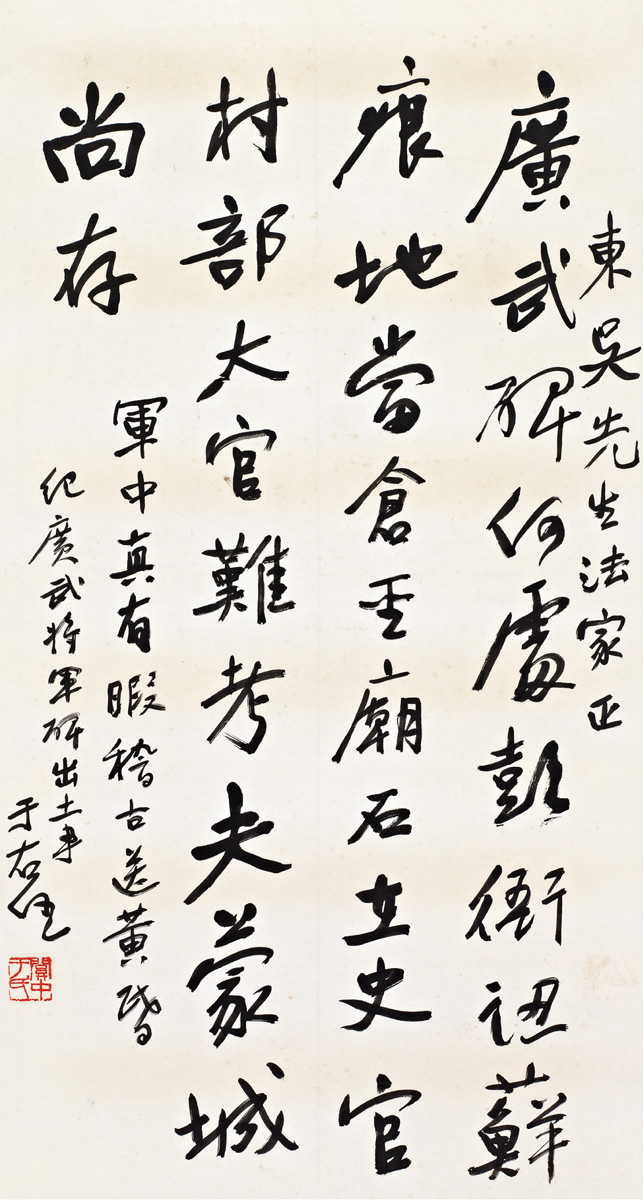 東吳先生法家正
廣武碑何處彭衙認蘚
痕地當倉聖廟石立史官
村部大官難考夫蒙城
尚存
軍中真有暇稽古送黃昏
紀廣武將軍碑出土事
于右任
關中于氏